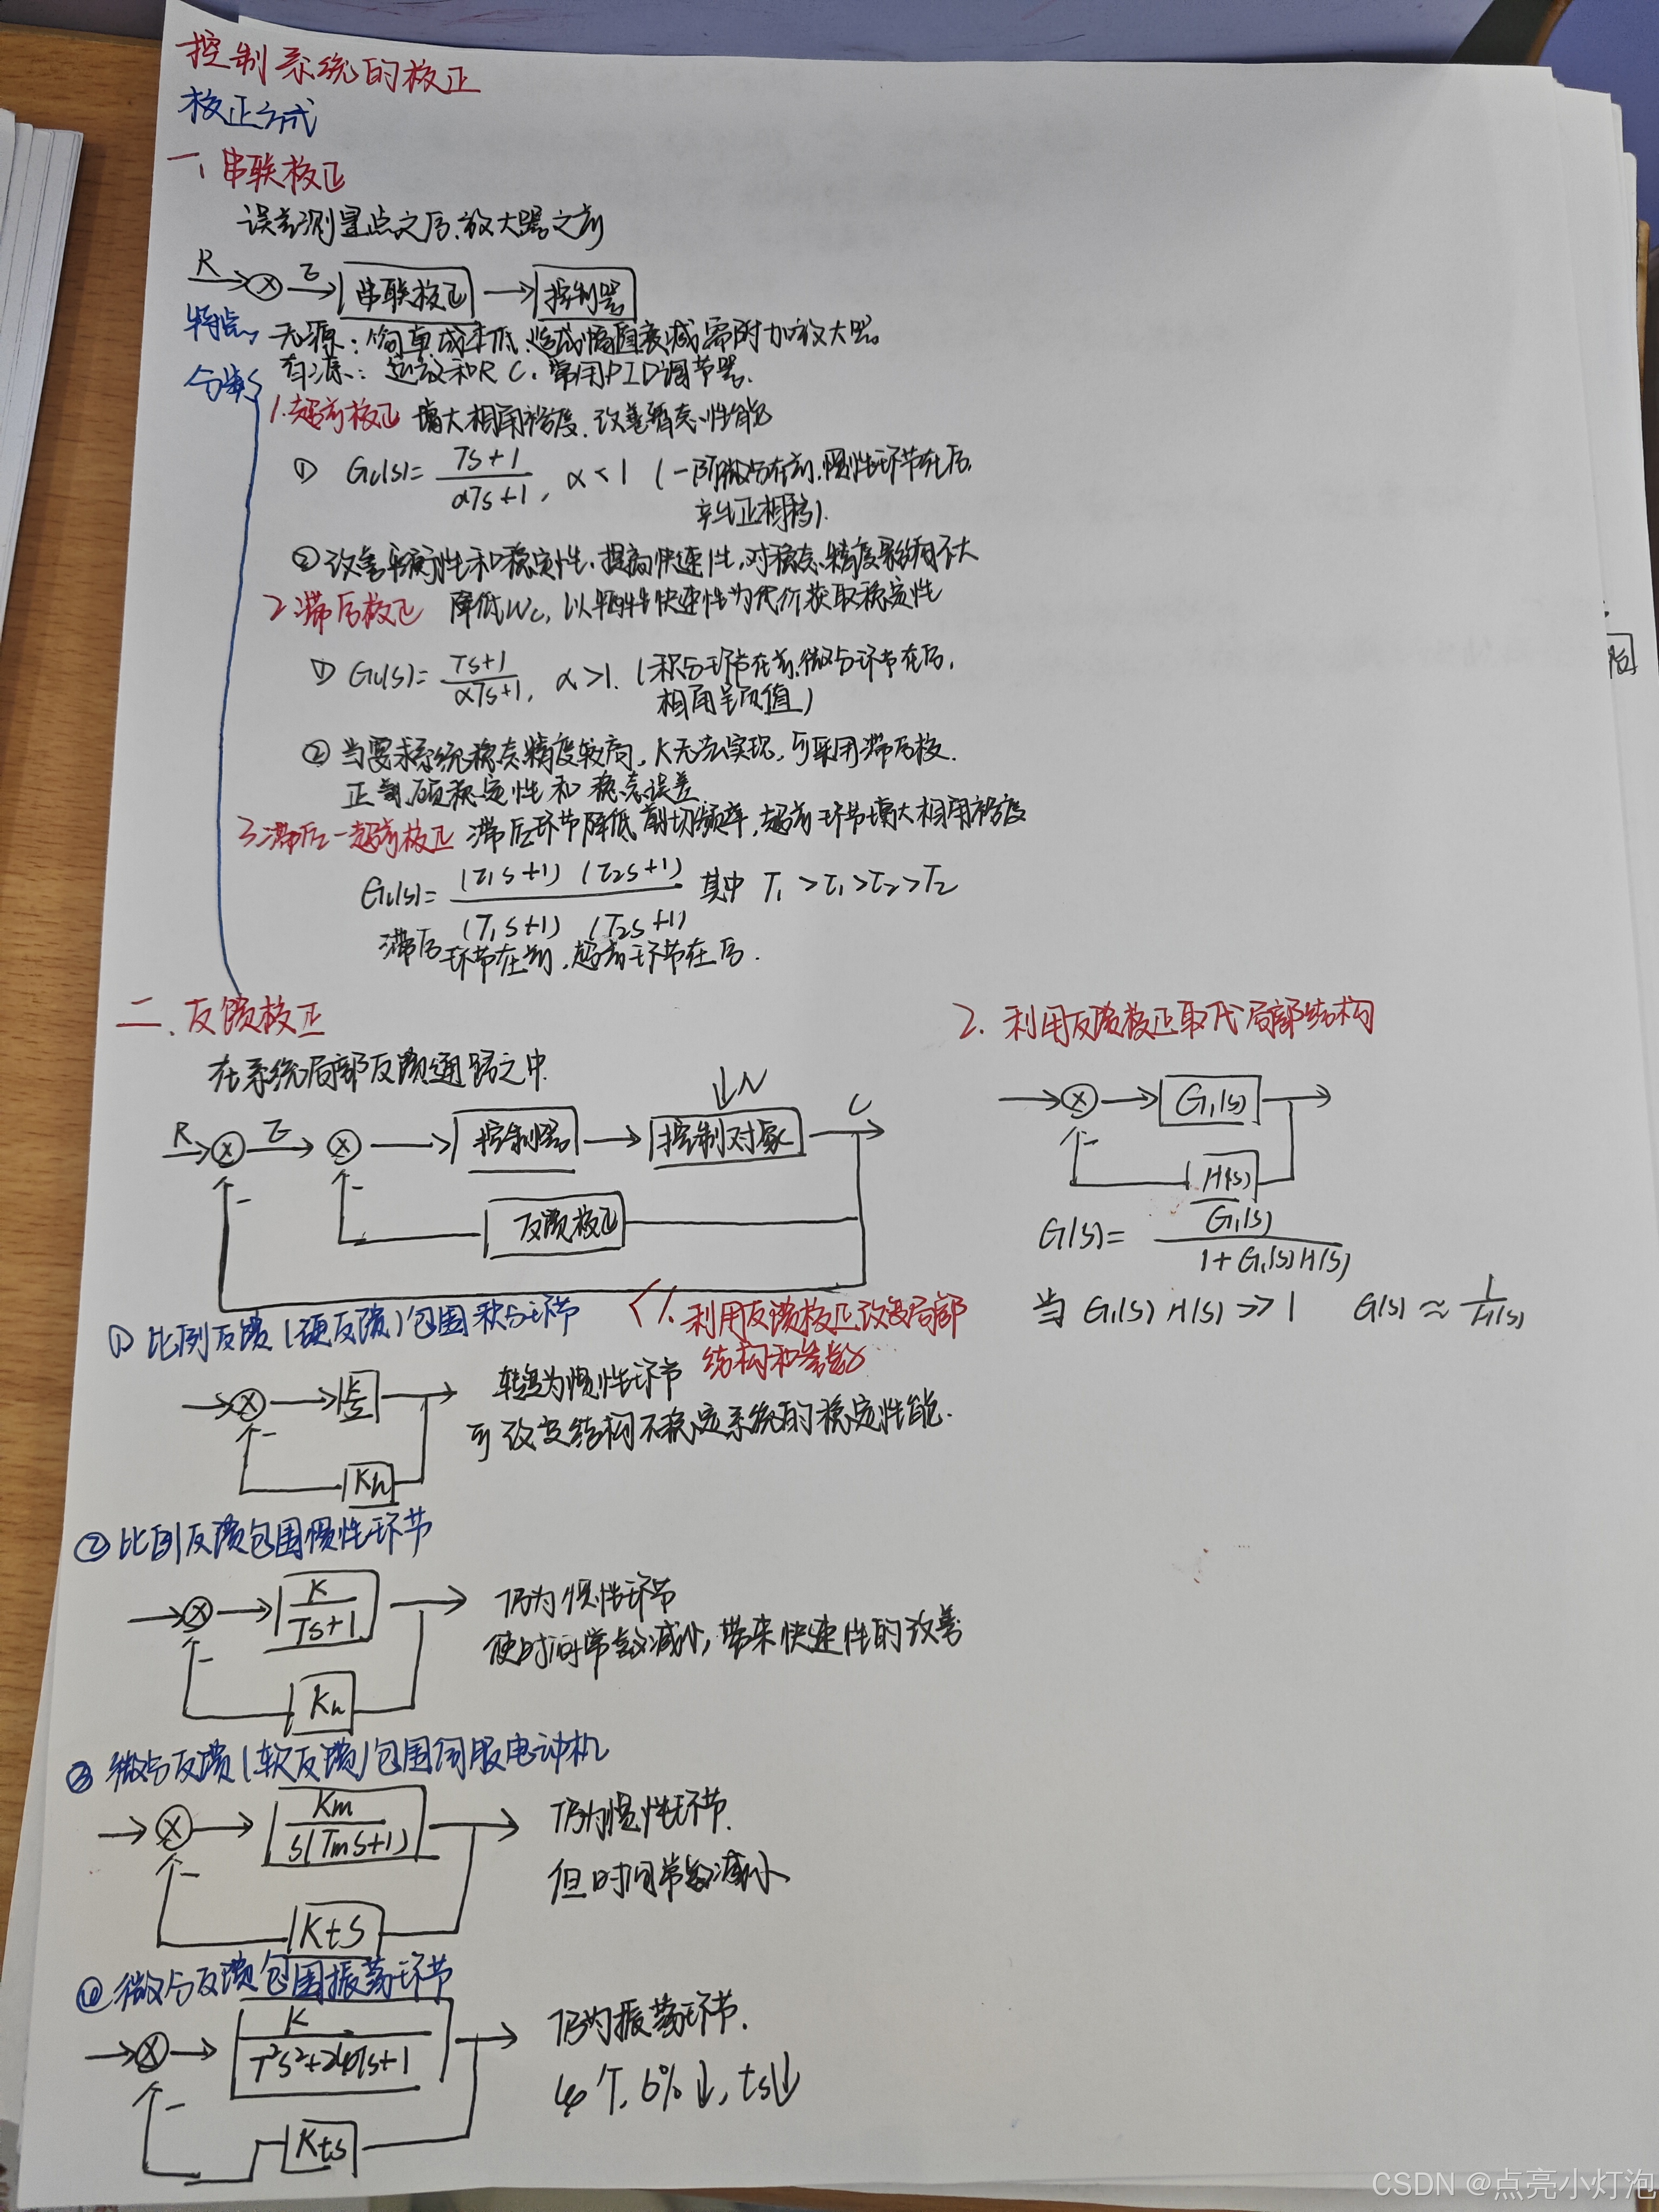 控制系统的校正
校正方式
一、串联校正
误差测量点之后、放大器之前
R E 串联校正 控制器
特点、 无源：简单成本低、造成幅值衰减需附加放大器。
有源：运放和RC、常用PID调节器.
分类
1.超前校正 增大相角裕度、改善暂态性能
① Gc(s)= Ts+1 / αTs+1, α<1 (一阶微分在前,惯性环节在后,
产生正相移).
② 改善平衡性和稳定性、提高快速性,对稳态精度影响不大
2.滞后校正 降低Wc, 以牺牲快速性为代价获取稳定性
① Gc(s)= Ts+1 / αTs+1, α>1. (积分环节在前,微分环节在后,
相角呈负值)
② 当要求系统稳态精度较高,K无法实现,可采用滞后校
正兼顾稳定性和稳态误差
3.滞后-超前校正 滞后环节降低剪切频率,超前环节增大相角裕度
Gc(s)= (τ1s+1) (τ2s+1) / (T1s+1) (T2s+1) 其中 T1>τ1>τ2>T2
滞后环节在前,超前环节在后.
二、反馈校正
在系统局部反馈通路之中
R E 控制器 控制对象 N C
- - 反馈校正
1.利用反馈校正改变局部
结构和参数
① 比例反馈(硬反馈)包围积分环节
K/S
- Kh
转变为惯性环节
可改变结构不稳定系统的稳定性能.
② 比例反馈包围惯性环节
K / Ts+1
- Kh
仍为惯性环节
使时间常数减小,带来快速性的改善
③ 微分反馈(软反馈)包围伺服电动机
Km / S(TmS+1)
- KtS
仍为惯性环节.
但时间常数减小
④ 微分反馈包围振荡环节
K / T²S²+2ζTs+1
- Kts
仍为振荡环节.
ζ↑, σ%↓, ts↓
2. 利用反馈校正取代局部结构
G1(s)
- H(s)
G(s)= G1(s) / 1+G1(s)H(s)
当 G1(s)H(s)>>1 G(s)≈ 1/H(s)
后
CSDN @点亮小灯泡